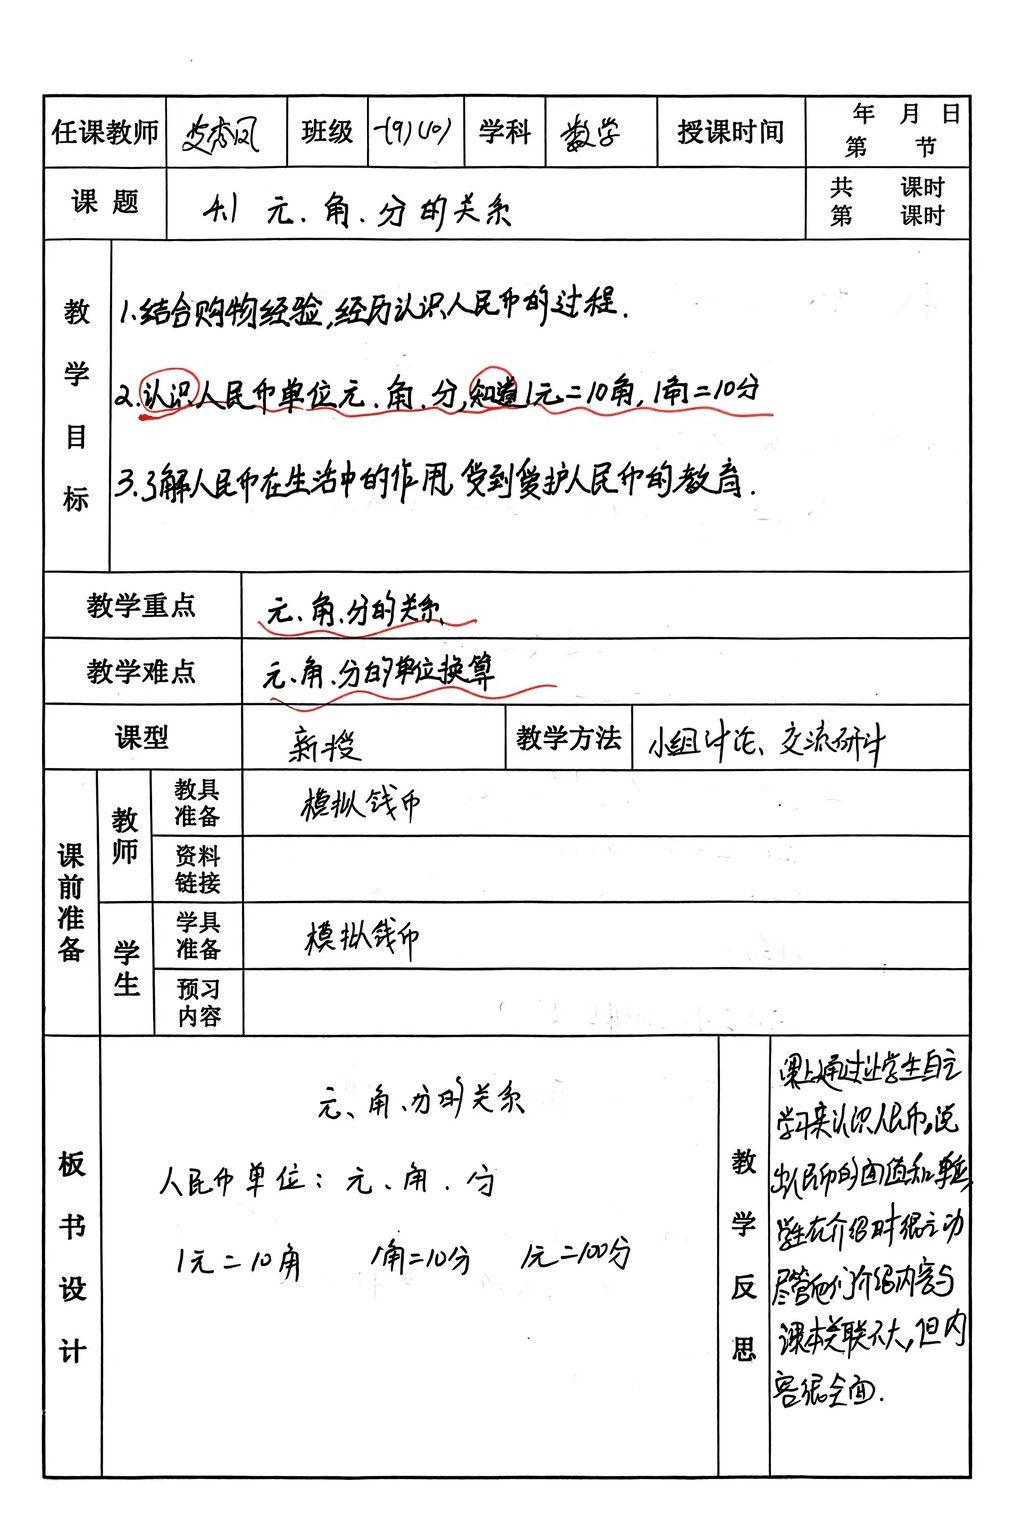 任课教师 班级 一(9)(10) 学科 数学 授课时间 年 月 日
第 节
课题 4.1 元、角、分的关系 共 课时
第 课时
教学目标
1.结合购物经验,经历认识人民币的过程.
2.认识人民币单位元、角、分,知道1元=10角,1角=10分
3.了解人民币在生活中的作用,受到爱护人民币的教育.
教学重点 元、角、分的关系、
教学难点 元、角、分的单位换算
课型 新授 教学方法 小组讨论、交流研讨
课前准备
教师 教具准备 模拟钱币
资料链接
学生 学具准备 模拟钱币
预习内容
板书设计
元、角、分的关系
人民币单位:元、角、分
1元=10角 1角=10分 1元=100分
教学反思
课上通过让学生自主
学习来认识人民币,说
出人民币的面值和单位,
学生在介绍时很主动
尽管他们介绍内容与
课本关联不大,但内
容很全面.